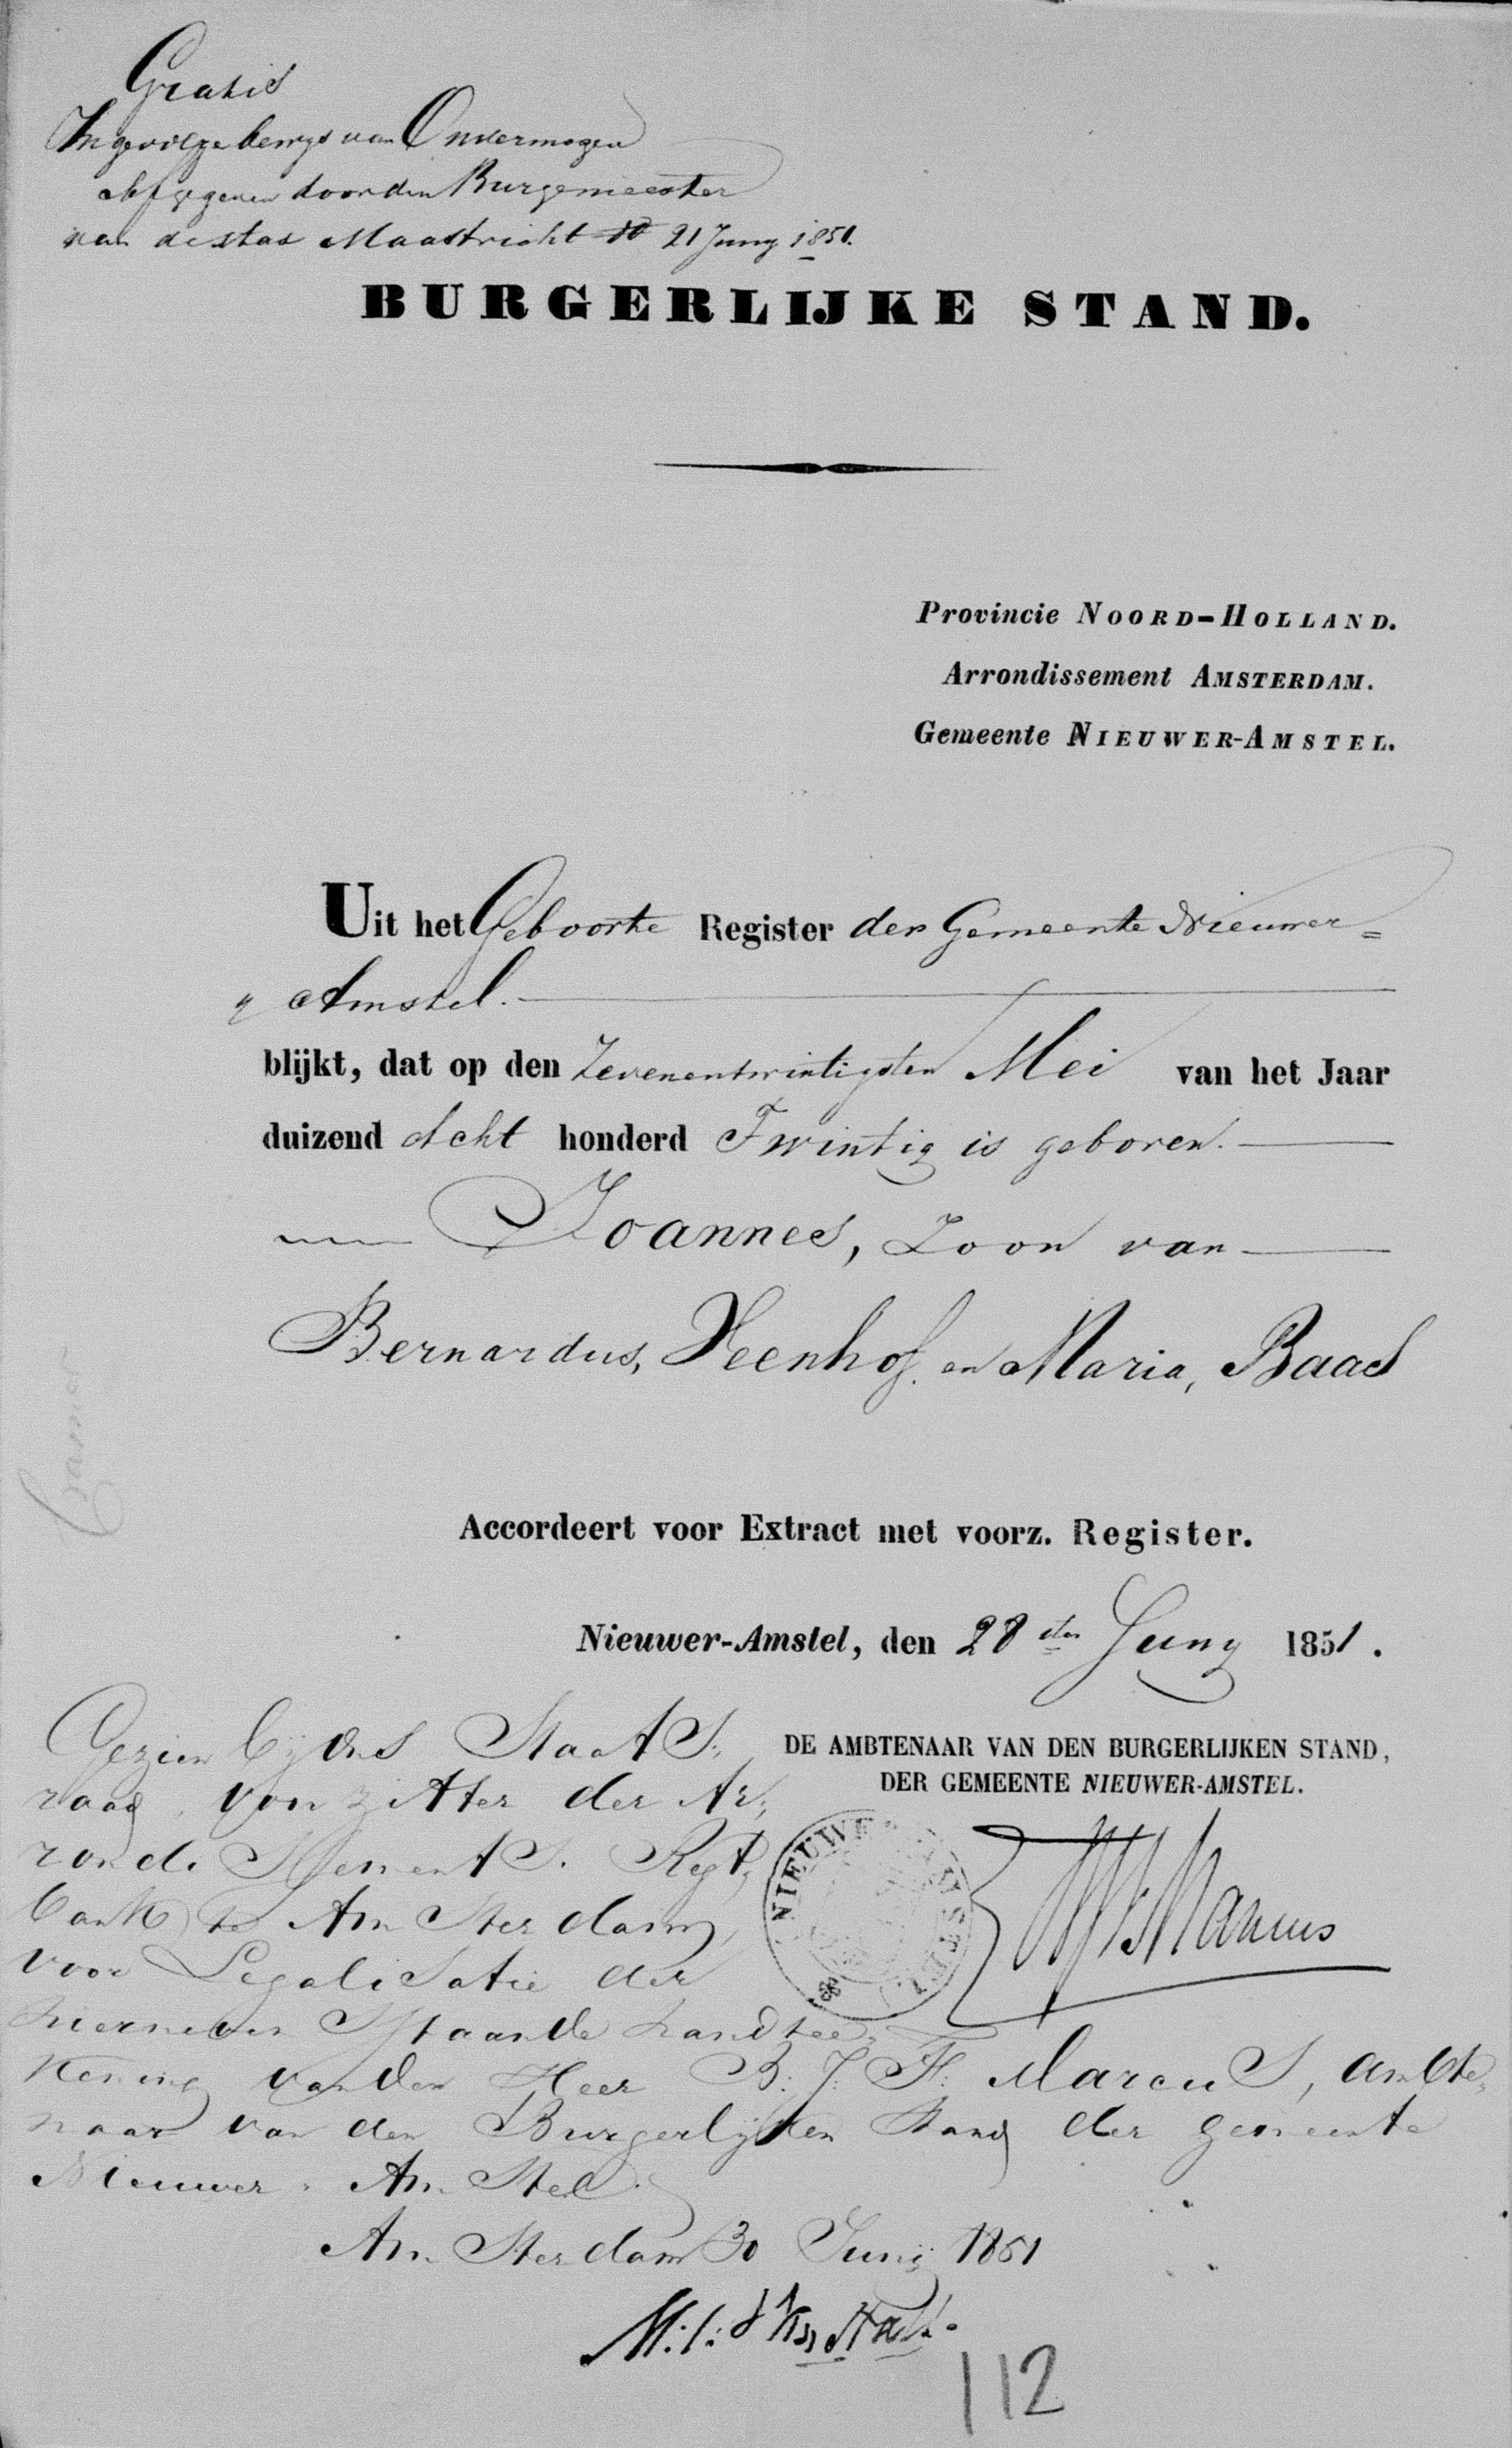 Gratis
Ingevolge bewys van Onvermogen
afgegeven door den Burgemeester
van de stad Maastricht dd 21 Juny 1851.
BURGERLIJKE STAND.
Provincie NOORD-HOLLAND.
Arrondissement AMSTERDAM.
Gemeente NIEUWER-AMSTEL.
Uit het Geboorte Register der Gemeente Nieuwer=
= Amstel.
blijkt, dat op den Zevenentwintigsten Mei van het Jaar
duizend Acht honderd Twintig is geboren.
Joannes, Zoon van
Bernardus, Veenhof. en Maria, Baas
Accordeert voor Extract met voorz. Register.
Nieuwer-Amstel, den 28 sten Juny 1851.
DE AMBTENAAR VAN DEN BURGERLIJKEN STAND,
DER GEMEENTE NIEUWER-AMSTEL.
NIEUWER AMSTEL
Marcus
Gezien bij Ons Staats,
raad, voorzitter der Ar,
rondissements. Regt,
bank te Amsterdam,
voor Legalisatie der
hiernevenstaande handtee,
kening van den Heer B: J: F: Marcus, ambte,
naar van den Burgerlijken Stand der gemeente
Nieuwer. Amstel.
Amsterdam 30 Junij 1851
112